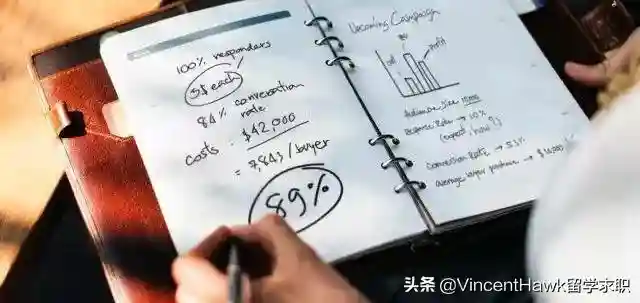 100% responders
5$ each
84% conversation
rate
costs = $42,000
= 7,843/buyer
89%
Upcoming Campaign
Profit
Audience Size 10000
Response Rate → 10%
Convertion Rate → 53%
average buyer purchase → $
头条 @VincentHawk留学求职